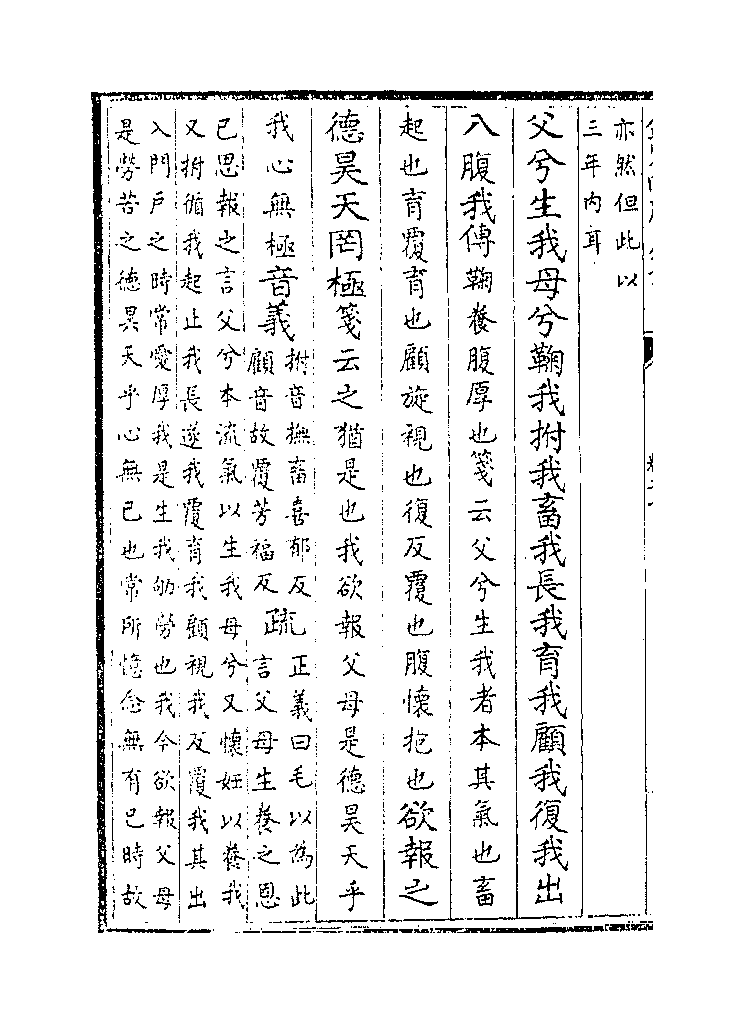 亦然但此以
三年内耳
父兮生我母兮鞠我拊我畜我長我育我顧我復我出
入腹我傳鞠養腹厚也箋云父兮生我者本其氣也畜
起也育覆育也顧旋視也復反覆也腹懷抱也欲報之
德昊天罔極箋云之猶是也我欲報父母是德昊天乎
我心無極音義拊音撫畜喜郁反
顧音故覆芳福反疏正義曰毛以為此
言父母生養之恩
已思報之言父兮本流氣以生我母兮又懷妊以養我
又拊循我起止我長遂我覆育我顧視我反覆我其出
入門戶之時常愛厚我是生我劬勞也我今欲報父母
是勞苦之德昊天乎心無已也常所憶念無有已時故